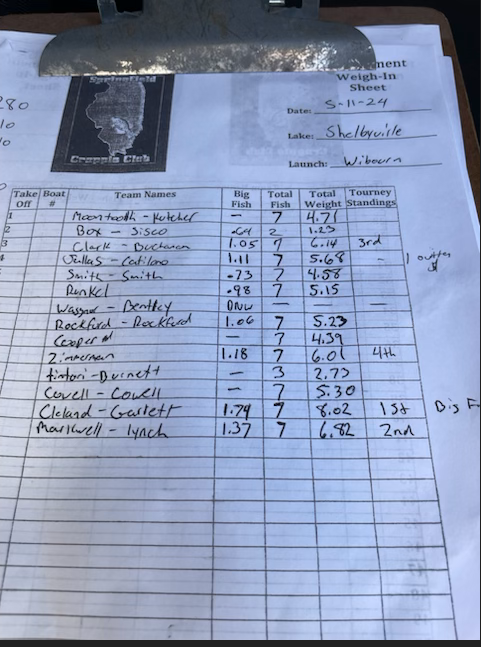 Springfield
Crappie Club
Weigh-In
Sheet
Date: 5-11-24
Lake: Shelbyville
Launch: Wiborn
Take Off Boat # Team Names Big Fish Total Fish Total Weight Tourney Standings
1 Moontooth - Kutcher - 7 4.71
2 Box - Sisco .64 2 1.23
3 Clark - Buchanan 1.05 7 6.14 3rd
1.11 7 5.68 -
Smith - Smith .73 7 4.58
Runkel .98 7 5.15
DNW - -
Rockford - Rockford 1.06 7 5.23
Cooper - 7 4.39
Zimmerman 1.18 7 6.01 4th
- 3 2.73
Covell - Cowell - 7 5.30
Cleland - Garlett 1.74 7 8.02 1st Big F
Markwell - Lynch 1.37 7 6.82 2nd